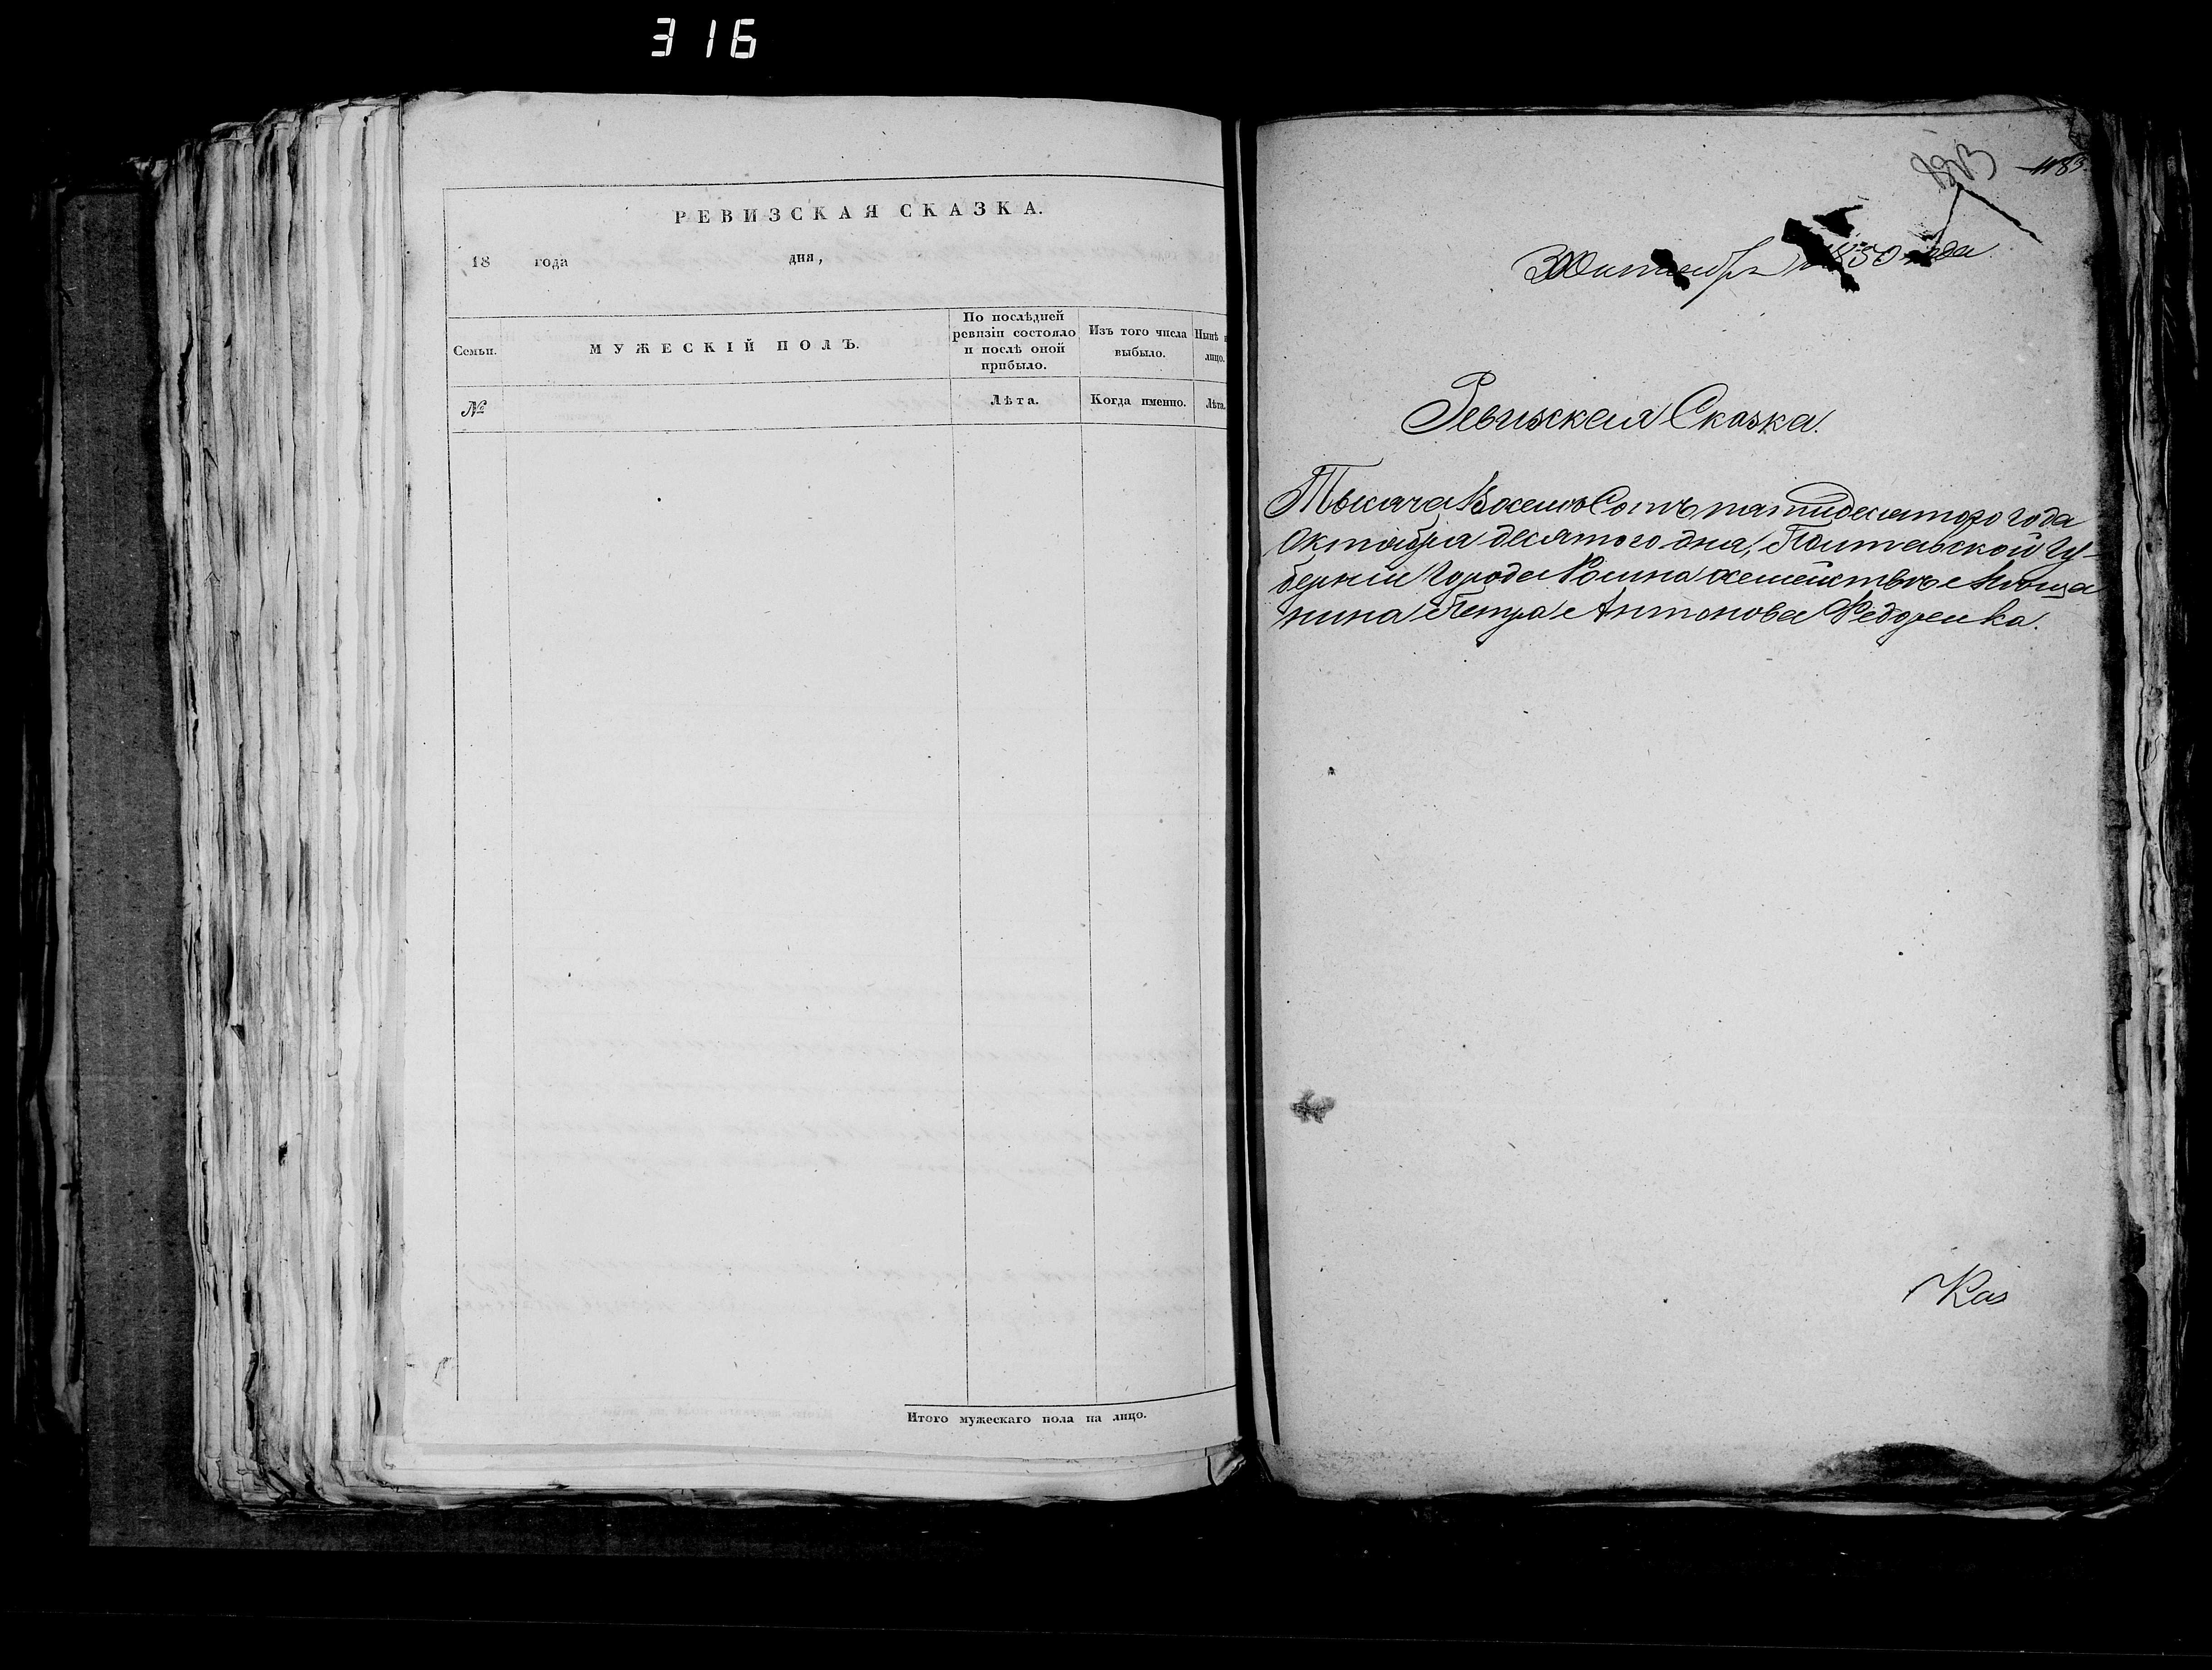 316
РЕВИЗСКАЯ СКАЗКА.
18 года дня,
Семьи.
МУЖЕСКІЙ ПОЛЪ.
По послѣдней ревизіи состояло и послѣ оной прибыло.
Изъ того числа выбыло.
Нынѣ
лицо.
№
Лѣта.
Когда именно.
Лѣта.
Итого мужескаго пола на лицо.
1850 года
Ревизская Сказка.
Тысяча Восемь Сотъ пятидесятого года
Октября десятого дня, Полтавской Гу-
берніи Города Ромна о семействѣ Мѣща
нина Петра Антонова Федоренка.